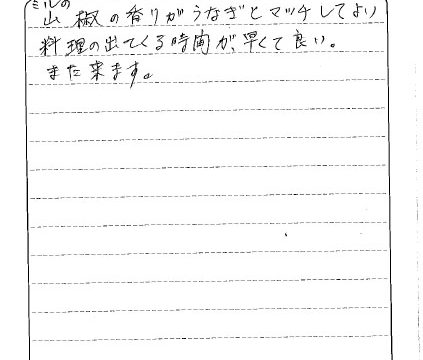 ミルの
山椒の香りがうなぎとマッチしてよい
料理の出てくる時間が、早くて良い。
また来ます。